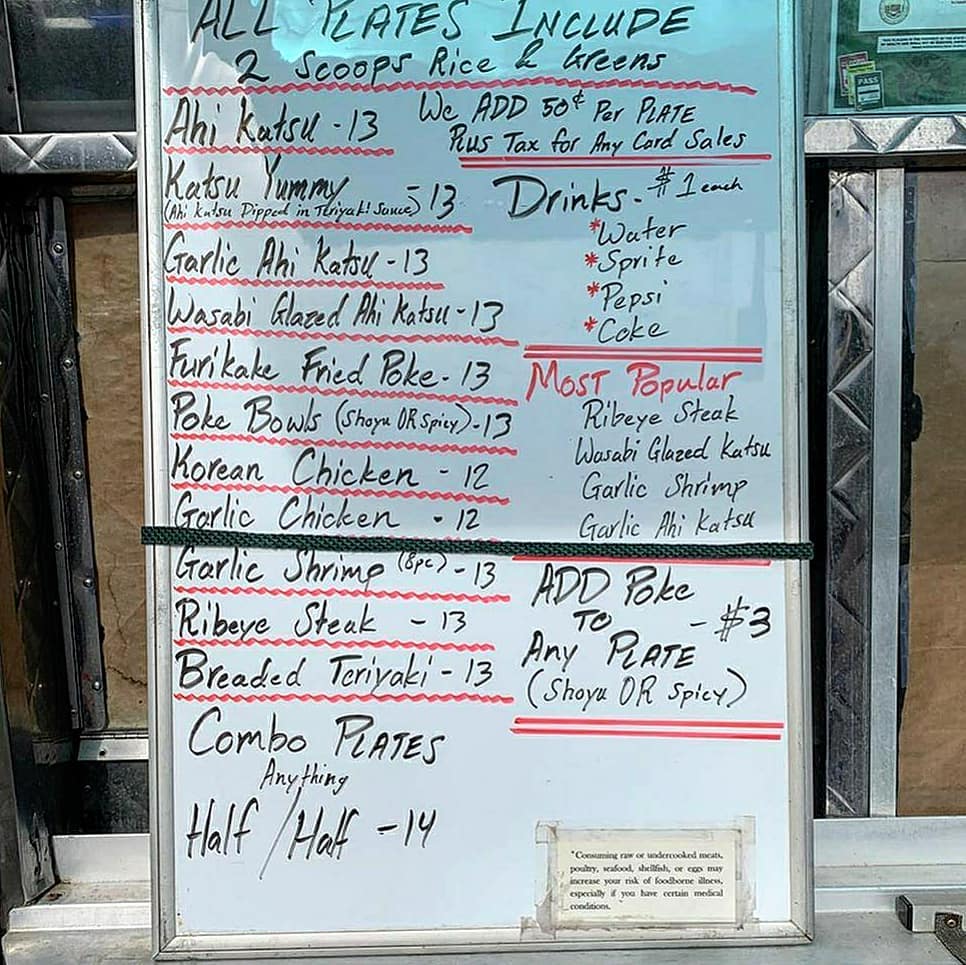 ALL PLATES INCLUDE
2 Scoops Rice & Greens
Ahi Katsu - 13
Katsu Yummy - 13
(Ahi Katsu Dipped in Teriyaki Sauce)
Garlic Ahi Katsu - 13
Wasabi Glazed Ahi Katsu - 13
Furikake Fried Poke - 13
Poke Bowls (Shoyu OR Spicy) - 13
Korean Chicken - 12
Garlic Chicken - 12
Garlic Shrimp (8pc) - 13
Ribeye Steak - 13
Breaded Teriyaki - 13
Combo PLATES
Anything
Half / Half - 14
We ADD 50¢ Per PLATE
Plus Tax for Any Card Sales
Drinks - $1 each
*Water
*Sprite
*Pepsi
*Coke
Most Popular
Ribeye Steak
Wasabi Glazed Katsu
Garlic Shrimp
Garlic Ahi Katsu
ADD Poke
TO - $3
Any PLATE
(Shoyu OR Spicy)
*Consuming raw or undercooked meats,
poultry, seafood, shellfish, or eggs may
increase your risk of foodborne illness,
especially if you have certain medical
conditions.
PASS